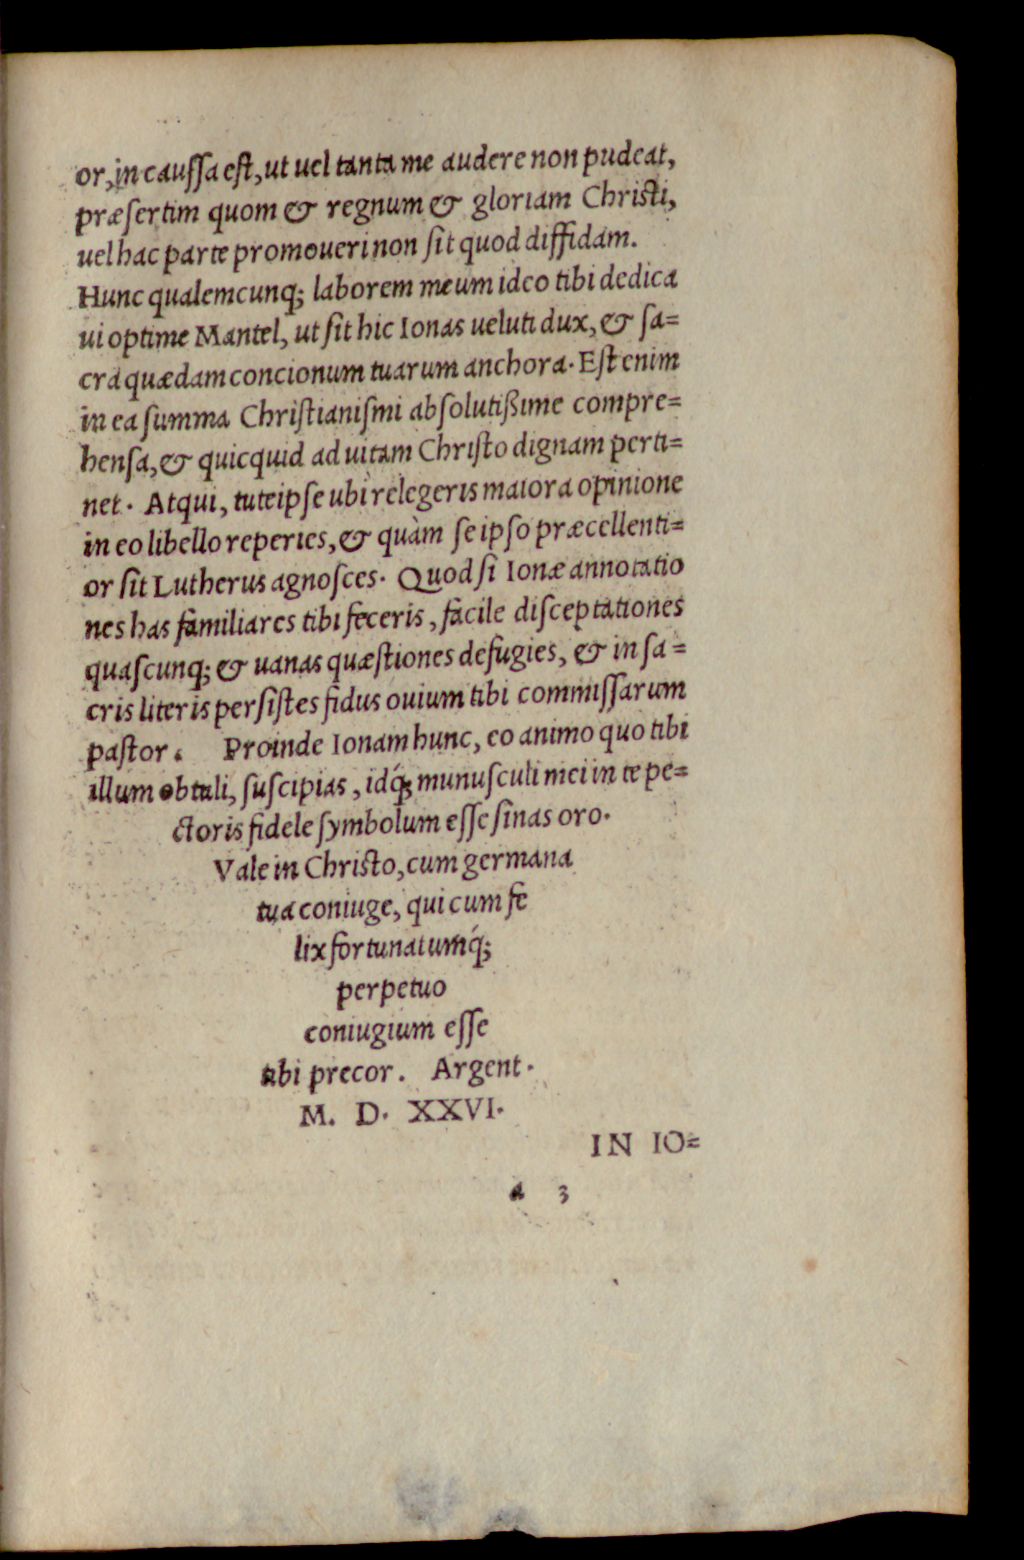 or, in caussa est, ut uel tanta me audere non pudeat,
præsertim quom & regnum & gloriam Christi,
uel hac parte promoueri non sit quod diffidam.
Hunc qualemcunq; laborem meum ideo tibi dedica
ui optime Mantel, ut sit hic Ionas ueluti dux, & sa=
cra quædam concionum tuarum anchora. Est enim
in ea summa Christianismi absolutißime compre=
hensa, & quicquid ad uitam Christo dignam perti=
net. Atqui, tuteipse ubi relegeris maiora opinione
in eo libello reperies, & quàm se ipso præcellenti=
or sit Lutherus agnosces. Quod si Ionæ annotatio
nes has familiares tibi feceris, facile disceptationes
quascunq; & uanas quæstiones defugies, & in sa=
cris literis persistes fidus ouium tibi commissarum
pastor. Proinde Ionam hunc, eo animo quo tibi
illum obtuli, suscipias, idq́; munusculi mei in te pe=
ctoris fidele symbolum esse sinas oro.
Vale in Christo, cum germana
tua coniuge, qui cum fe
lix fortunatumq́;
perpetuo
coniugium esse
tibi precor. Argent.
M. D. XXVI.
IN IO=
a 3